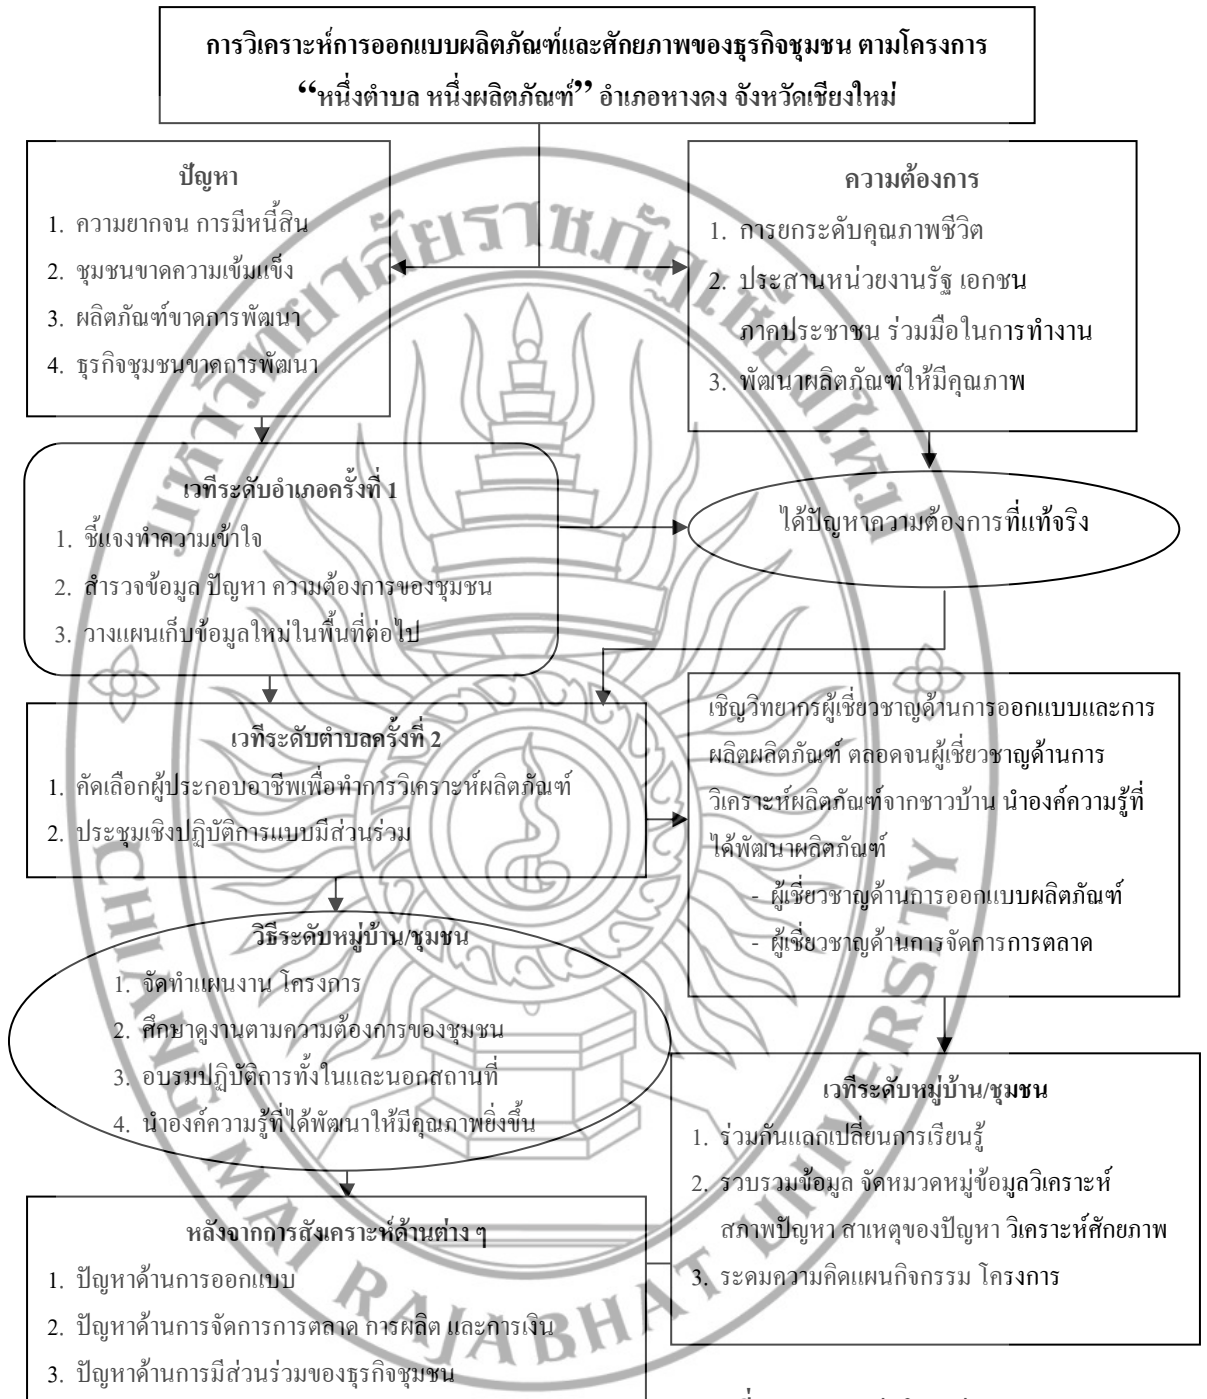 การวิเคราะห์การออกแบบผลิตภัณฑ์และศักยภาพของธุรกิจชุมชน ตามโครงการ
“หนึ่งตำบล หนึ่งผลิตภัณฑ์” อำเภอหางดง จังหวัดเชียงใหม่
ปัญหา
1. ความยากจน การมีหนี้สิน
2. ชุมชนขาดความเข้มแข็ง
3. ผลิตภัณฑ์ขาดการพัฒนา
4. ธุรกิจชุมชนขาดการพัฒนา
ความต้องการ
1. การยกระดับคุณภาพชีวิต
2. ประสานหน่วยงานรัฐ เอกชน
ภาคประชาชน ร่วมมือในการทำงาน
3. พัฒนาผลิตภัณฑ์ให้มีคุณภาพ
เวทีระดับอำเภอครั้งที่ 1
1. ชี้แจงทำความเข้าใจ
2. สำรวจข้อมูล ปัญหา ความต้องการของชุมชน
3. วางแผนเก็บข้อมูลใหม่ในพื้นที่ต่อไป
ได้ปัญหาความต้องการที่แท้จริง
เวทีระดับตำบลครั้งที่ 2
1. คัดเลือกผู้ประกอบอาชีพเพื่อทำการวิเคราะห์ผลิตภัณฑ์
2. ประชุมเชิงปฏิบัติการแบบมีส่วนร่วม
เชิญวิทยากรผู้เชี่ยวชาญด้านการออกแบบและการ
ผลิตผลิตภัณฑ์ ตลอดจนผู้เชี่ยวชาญด้านการ
วิเคราะห์ผลิตภัณฑ์จากชาวบ้าน นำองค์ความรู้ที่
ได้พัฒนาผลิตภัณฑ์
- ผู้เชี่ยวชาญด้านการออกแบบผลิตภัณฑ์
- ผู้เชี่ยวชาญด้านการจัดการการตลาด
วิธีระดับหมู่บ้าน/ชุมชน
1. จัดทำแผนงาน โครงการ
2. ศึกษาดูงานตามความต้องการของชุมชน
3. อบรมปฏิบัติการทั้งในและนอกสถานที่
4. นำองค์ความรู้ที่ได้พัฒนาให้มีคุณภาพยิ่งขึ้น
เวทีระดับหมู่บ้าน/ชุมชน
1. ร่วมกันแลกเปลี่ยนการเรียนรู้
2. รวบรวมข้อมูล จัดหมวดหมู่ข้อมูลวิเคราะห์
สภาพปัญหา สาเหตุของปัญหา วิเคราะห์ศักยภาพ
3. ระดมความคิดแผนกิจกรรม โครงการ
หลังจากการสังเคราะห์ด้านต่าง ๆ
1. ปัญหาด้านการออกแบบ
2. ปัญหาด้านการจัดการการตลาด การผลิต และการเงิน
3. ปัญหาด้านการมีส่วนร่วมของธุรกิจชุมชน
มหาวิทยาลัยราชภัฏเชียงใหม่
CHIANG MAI RAJABHAT UNIVERSITY